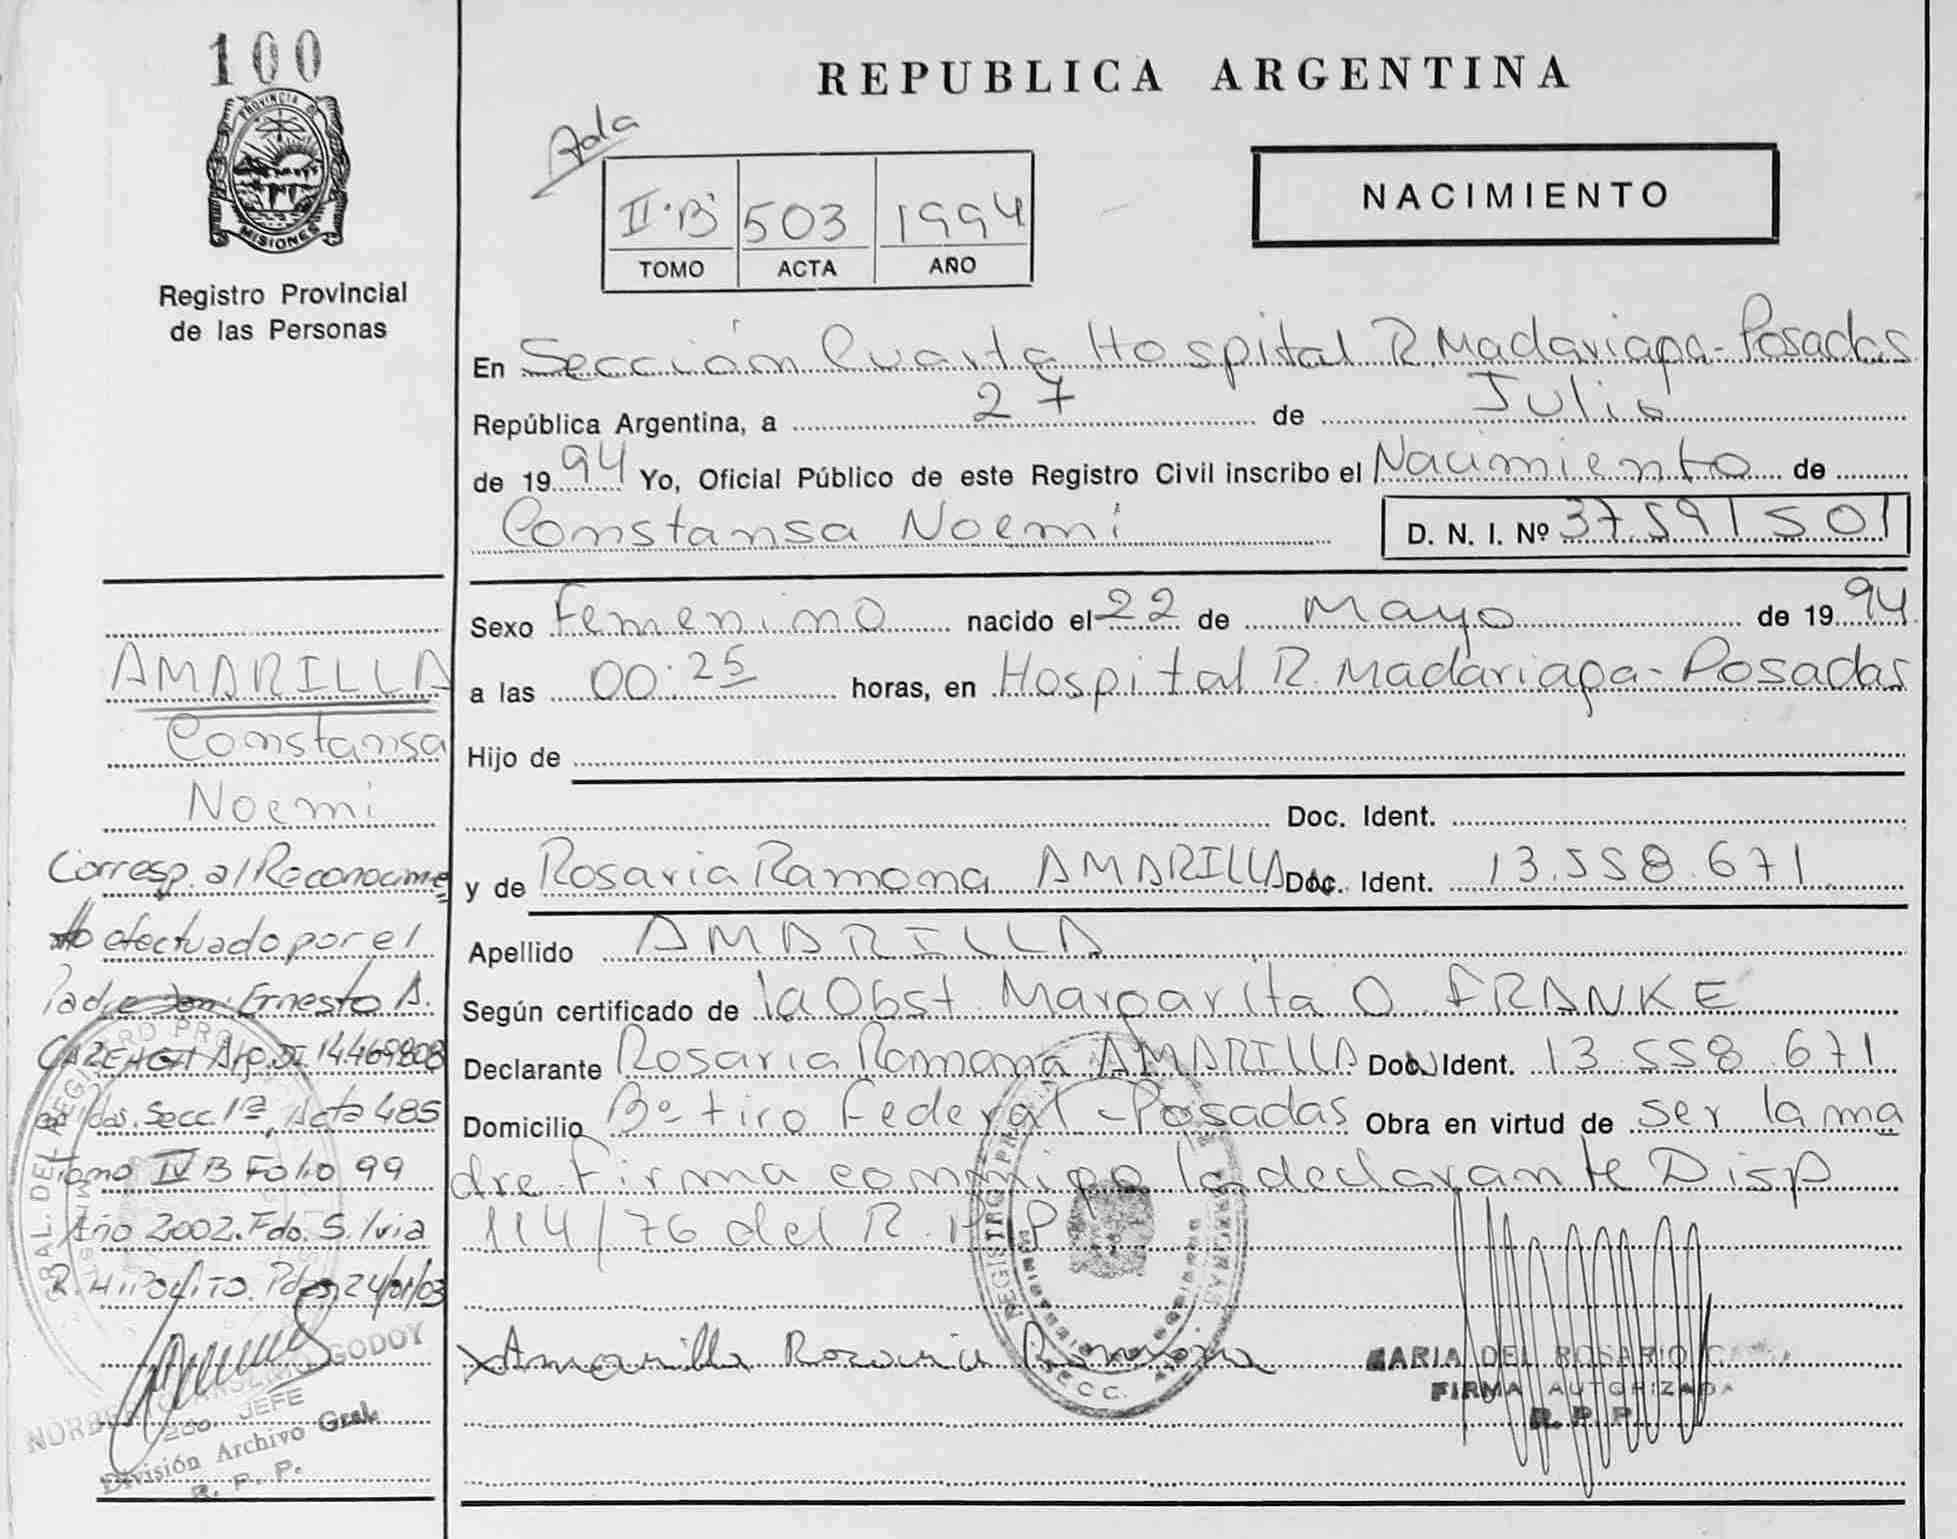 100
PROVINCIA D
MISIONES
Registro Provincial
de las Personas
REPUBLICA ARGENTINA
II·B 503 1994
TOMO ACTA AÑO
NACIMIENTO
En Sección Cuarta Hospital R Madariaga-Posadas
República Argentina, a 27 de Julio
de 1994 Yo, Oficial Público de este Registro Civil inscribo el Nacimiento de
Constansa Noemi D. N. I. Nº 37591501
Sexo Femenino nacido el 22 de Mayo de 1994
a las 00·25 horas, en Hospital R. Madariaga-Posadas
Hijo de
Doc. Ident.
y de Rosaria Ramona AMARILLA Doc. Ident. 13.558.671
Apellido AMARILLA
Según certificado de la Obst. Margarita O. FRANKE
Declarante Rosaria Ramona AMARILLA Doc. Ident. 13.558.671
Domicilio Bº tiro Federal-Posadas Obra en virtud de ser la ma
dre firma conmigo la declarante Disp
114/76 del R.P.P
Amarilla Rosaria Ramona
MARIA DEL ROSARIO
FIRMA AUTORIZADA
R. P. P.
AMARILLA
Constansa
Noemi
Corresp. al Reconocimie
nto efectuado por el
Padre Ernesto A.
Arg. DI 14.469808
Secc. 1ª, Acta 485
Tomo IV B Folio 99
Año 2002. Fdo. Silvia
R. HIPOLITO. Pdas 24/01/03
GODOY
JEFE
División Archivo Gral.
R. P. P.